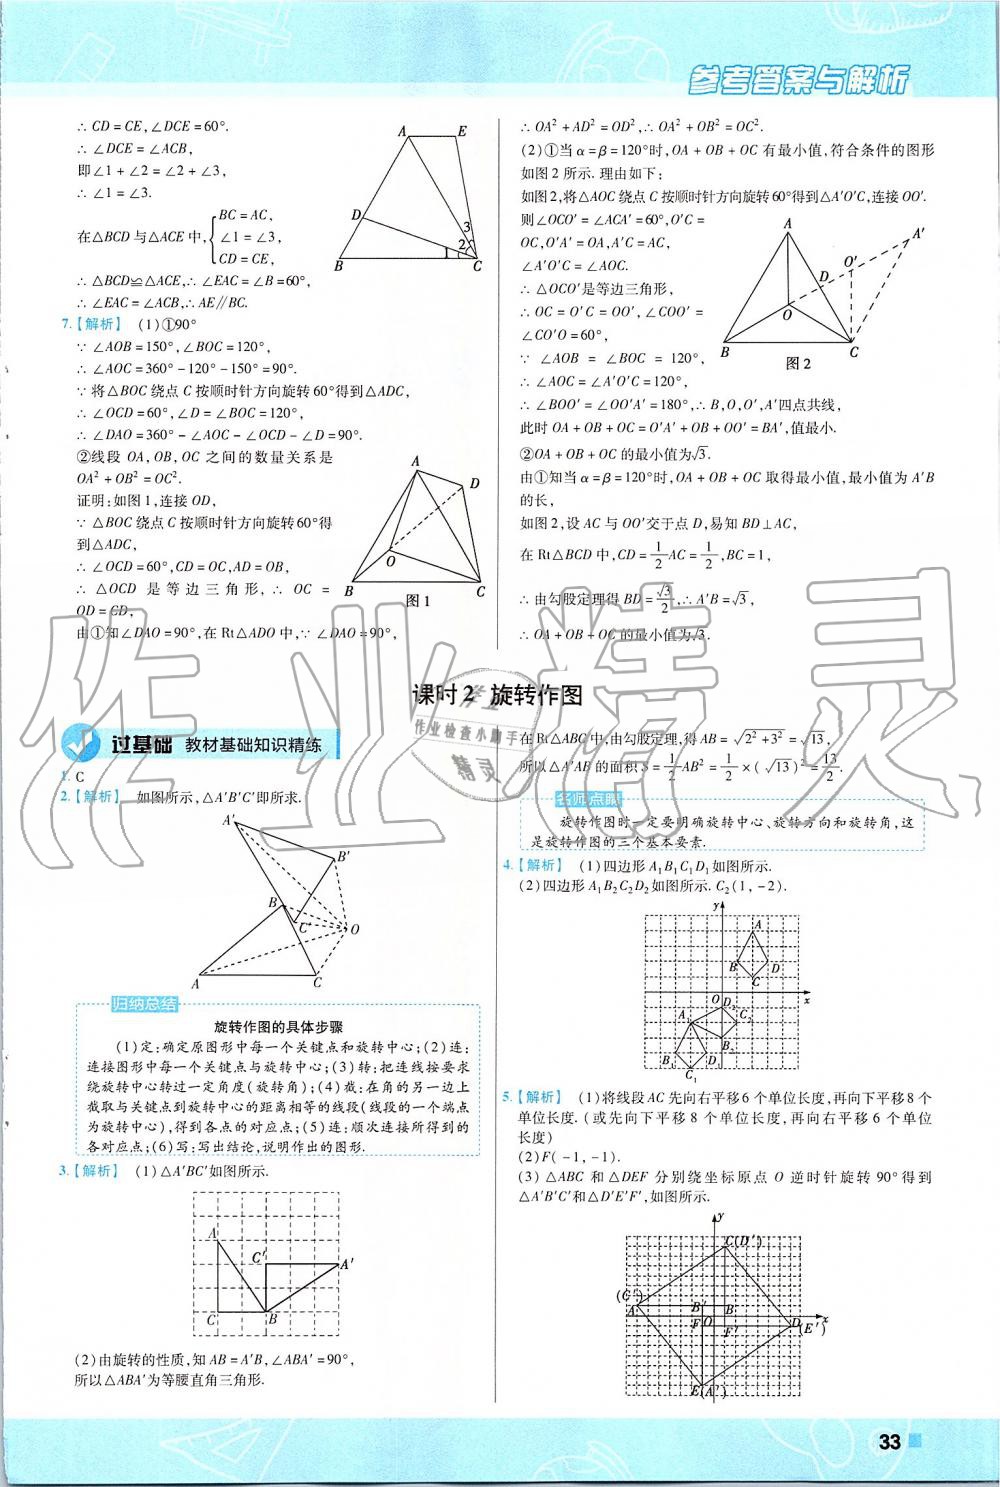 参考答案与解析
∴ CD = CE, ∠DCE = 60°.
∴ ∠DCE = ∠ACB,
即∠1 + ∠2 = ∠2 + ∠3,
∴ ∠1 = ∠3.
在△BCD与△ACE中,
BC = AC,
∠1 = ∠3,
CD = CE,
∴ △BCD≌△ACE, ∴ ∠EAC = ∠B = 60°,
∴ ∠EAC = ∠ACB, ∴ AE∥BC.
A E
D
3
2
1
B C
7.【解析】 (1)①90°
∵ ∠AOB = 150°, ∠BOC = 120°,
∴ ∠AOC = 360° - 120° - 150° = 90°.
∵ 将△BOC绕点C按顺时针方向旋转60°得到△ADC,
∴ ∠OCD = 60°, ∠D = ∠BOC = 120°,
∴ ∠DAO = 360° - ∠AOC - ∠OCD - ∠D = 90°.
②线段 OA, OB, OC 之间的数量关系是
OA² + OB² = OC².
证明:如图1,连接OD,
∵ △BOC绕点C按顺时针方向旋转60°得
到△ADC,
∴ ∠OCD = 60°, CD = OC, AD = OB,
∴ △OCD 是等边三角形, ∴ OC =
OD = CD,
由①知∠DAO = 90°,在Rt△ADO中, ∵ ∠DAO = 90°,
A
D
O
B C
图1
∴ OA² + AD² = OD², ∴ OA² + OB² = OC².
(2)①当α = β = 120°时, OA + OB + OC 有最小值,符合条件的图形
如图2所示.理由如下:
如图2,将△AOC绕点C按顺时针方向旋转60°得到△A′O′C,连接OO′.
则∠OCO′ = ∠ACA′ = 60°, O′C =
OC, O′A′ = OA, A′C = AC,
∠A′O′C = ∠AOC.
∴ △OCO′是等边三角形,
∴ OC = O′C = OO′, ∠COO′ =
∠CO′O = 60°,
∵ ∠AOB = ∠BOC = 120°,
∴ ∠AOC = ∠A′O′C = 120°,
∴ ∠BOO′ = ∠OO′A′ = 180°, ∴ B, O, O′, A′四点共线,
此时OA + OB + OC = O′A′ + OB + OO′ = BA′,值最小.
A A′
D O′
O
B C
图2
②OA + OB + OC的最小值为√3.
由①知当α = β = 120°时, OA + OB + OC 取得最小值,最小值为A′B
的长,
如图2,设AC与OO′交于点D,易知BD⊥AC,
在Rt△BCD中, CD = 1/2 AC = 1/2, BC = 1,
∴ 由勾股定理得BD = √3/2, ∴ A′B = √3,
∴ OA + OB + OC的最小值为√3.
课时2 旋转作图
过基础 教材基础知识精练
1. C
2.【解析】 如图所示, △A′B′C′即所求.
A′
B′
B
C′ O
A C
归纳总结
旋转作图的具体步骤
(1)定:确定原图形中每一个关键点和旋转中心;(2)连:
连接图形中每一个关键点与旋转中心;(3)转:把连线按要求
绕旋转中心转过一定角度(旋转角);(4)截:在角的另一边上
截取与关键点到旋转中心的距离相等的线段(线段的一个端点
为旋转中心),得到各点的对应点;(5)连:顺次连接所得到的
各对应点;(6)写:写出结论,说明作出的图形.
3.【解析】 (1)△A′BC′如图所示.
A
C′ A′
C B
(2)由旋转的性质,知AB = A′B, ∠ABA′ = 90°,
所以△ABA′为等腰直角三角形.
在Rt△ABC中,由勾股定理,得AB = √(2² + 3²) = √13,
所以△A′AB的面积S = 1/2 AB² = 1/2 × (√13)² = 13/2.
名师点睛
旋转作图时一定要明确旋转中心、旋转方向和旋转角,这
是旋转作图的三个基本要素.
4.【解析】 (1)四边形A₁B₁C₁D₁如图所示.
(2)四边形A₁B₂C₂D₂如图所示. C₂(1, -2).
y
A
B D
C
O D₂ x
A₁ C₂
B₂
B₁ D₁
C₁
5.【解析】 (1)将线段AC先向右平移6个单位长度,再向下平移8个
单位长度.(或先向下平移8个单位长度,再向右平移6个单位
长度)
(2)F(-1, -1).
(3)△ABC 和△DEF 分别绕坐标原点 O 逆时针旋转 90°得到
△A′B′C′和△D′E′F′,如图所示.
y
C(D′)
(C′)
A B′ B
F O F′ D x
(E′)
E(A′)
作业精灵
作业检查小助手
精灵
33